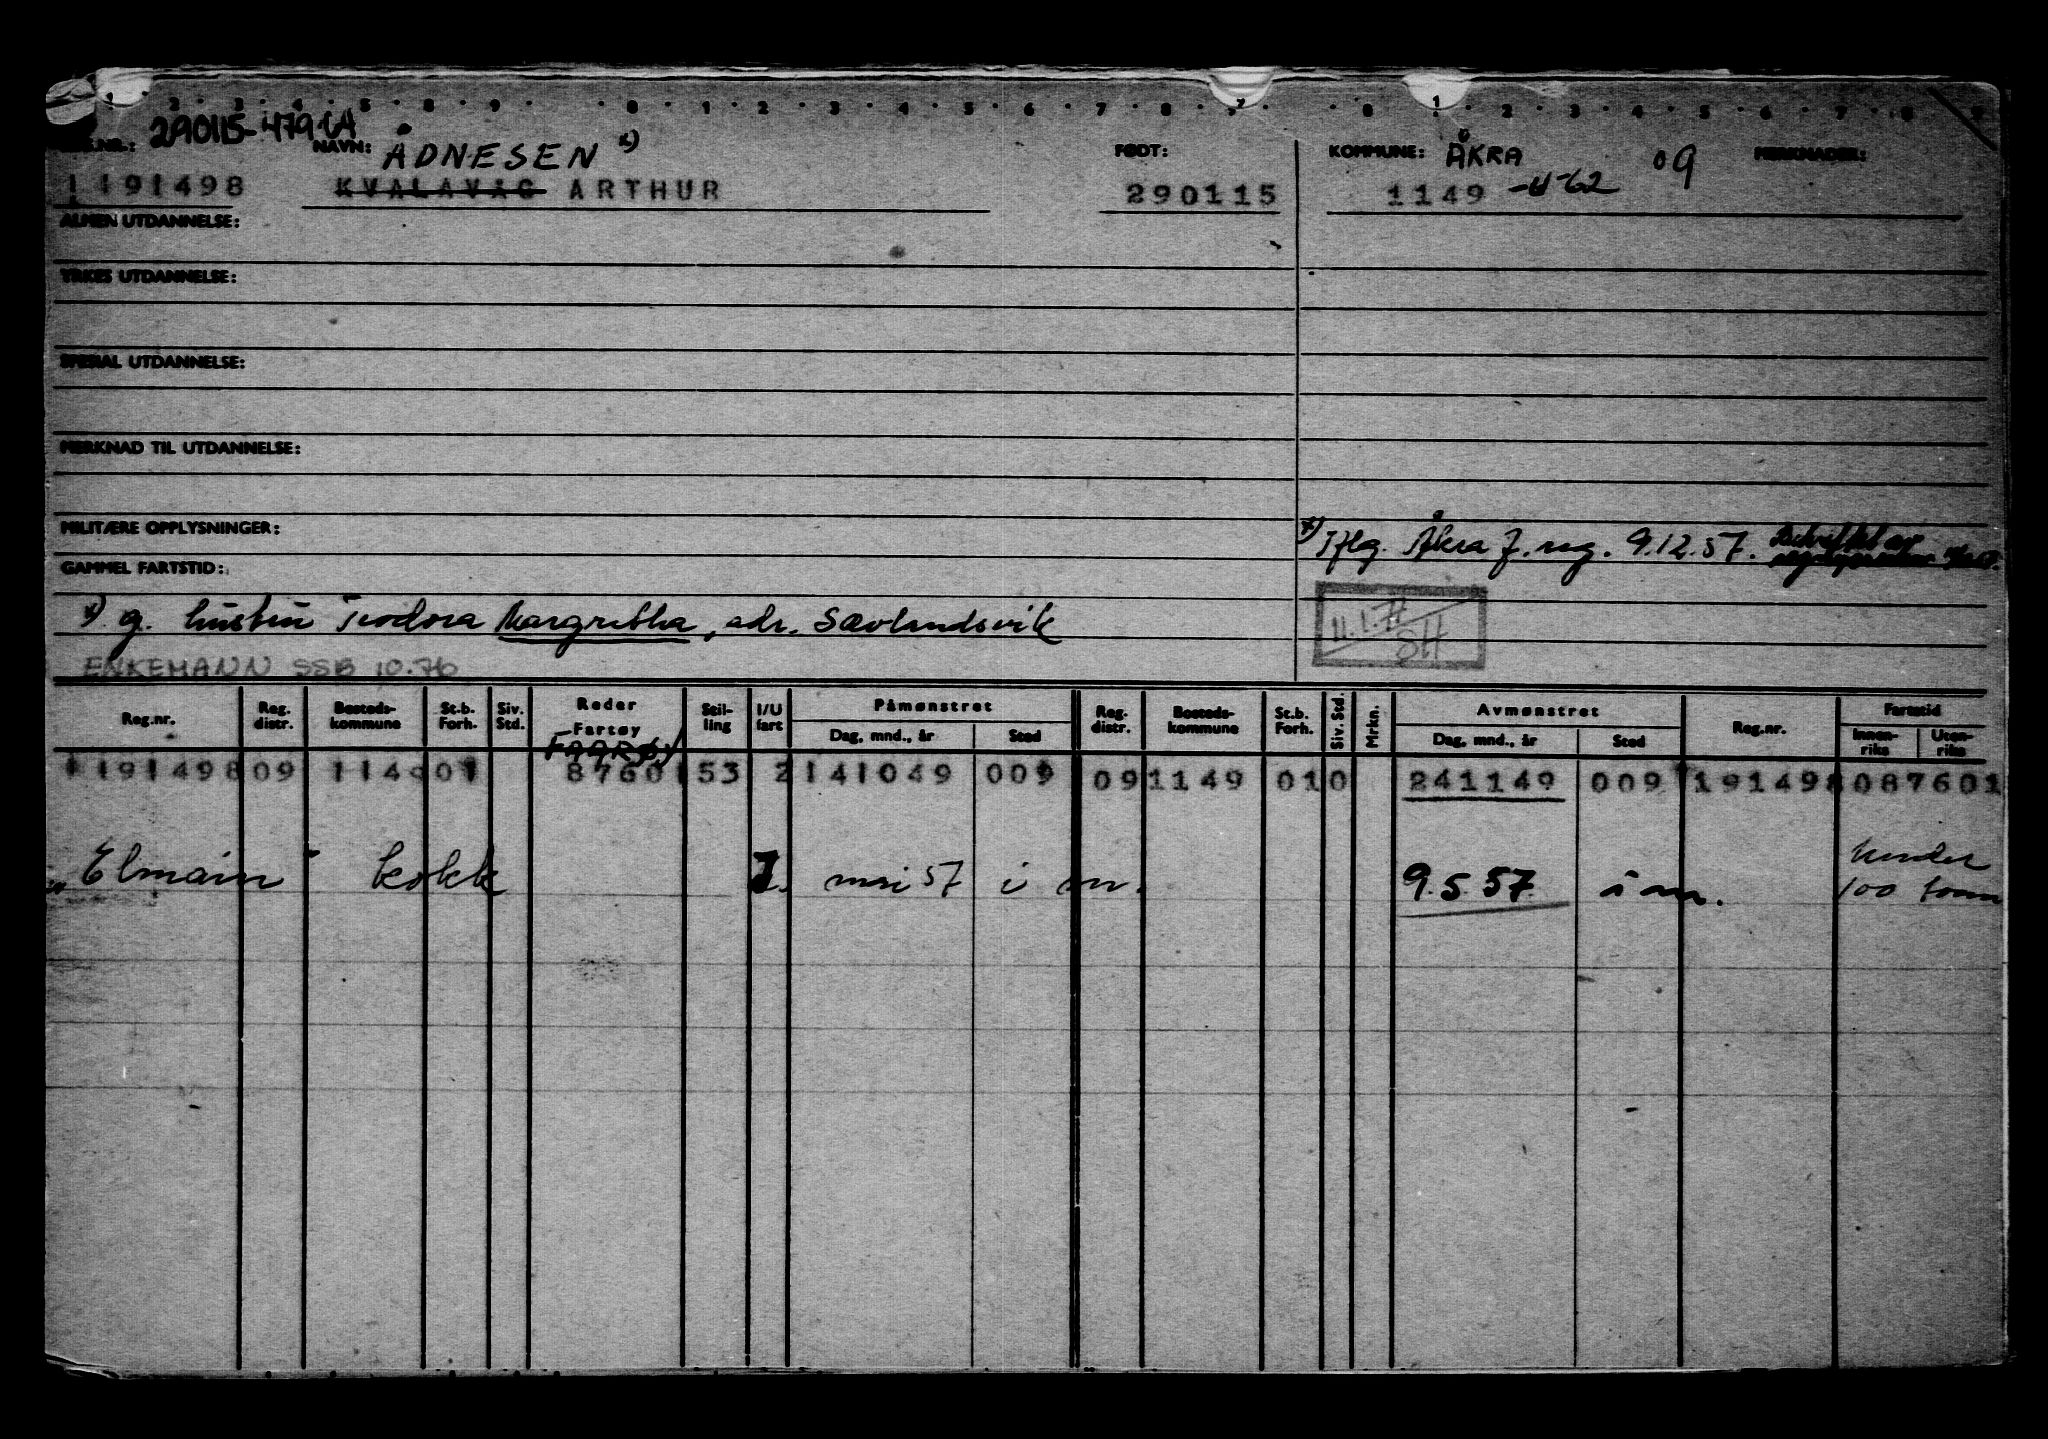 1 2 3 4 5 8 9 0 1 2 3 4 5 6 7 8 7 0 1 2 3 4 5 6 7 8 9
290115-479
NR.: NAVN: ÅDNESEN x) FØDT: KOMMUNE: ÅKRA 09 MERKNADER:
1191498 KVALAVÅG ARTHUR 290115 1149 -4-62
ALMEN UTDANNELSE:
YRKES UTDANNELSE:
SPESIAL UTDANNELSE:
MERKNAD TIL UTDANNELSE:
MILITÆRE OPPLYSNINGER: x) Iflg. Åkra f.reg. 9.12.57.
GAMMEL FARTSTID:
x) g. hustru Teodora Margretha, adr. Sævlandsvik
11.1.71
ENKEMANN SSB 10.76
Reg.nr. Reg. distr. Bosteds-kommune St.b. Forh. Siv. Std. Reder Fartøy Stil-ling I/U fart Påmønstret Dag, mnd., år Sted Reg. distr. Bosteds-kommune St.b. Forh. Siv. Std. Mrkn. Avmønstret Dag, mnd., år Sted Reg.nr. Fartstid Innen-riks Uten-riks
FAARØY
1191498 09 1149 01 87601 53 2 141049 009 09 1149 01 0 241149 009 1191498 087601
"Elmain" kokk mai 57 i m. 9.5.57 å m. under
100 tonn